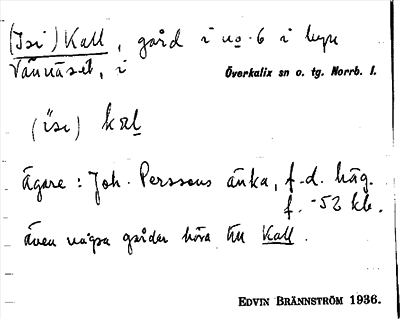 (Isi) Kall, gård i no. 6 i byn
Vännäset, i Överkalix sn o. tg. Norrb. l.
(i̊si) kal
Ägare: Joh. Perssons änka, f.d. häg.
f. -52 kb.
även några gårdar höra till Kall.
EDVIN BRÄNNSTRÖM 1936.